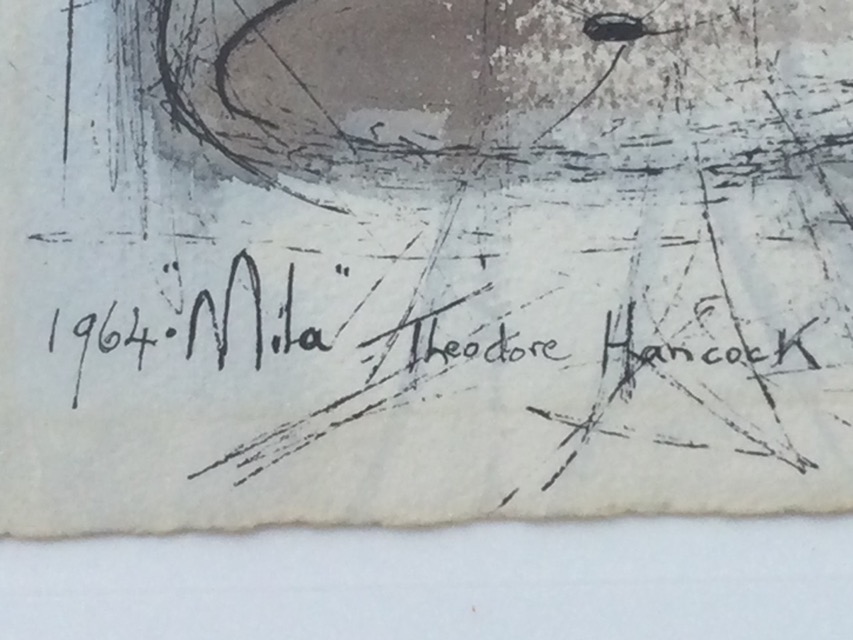 1964. "Mila" Theodore Hancock